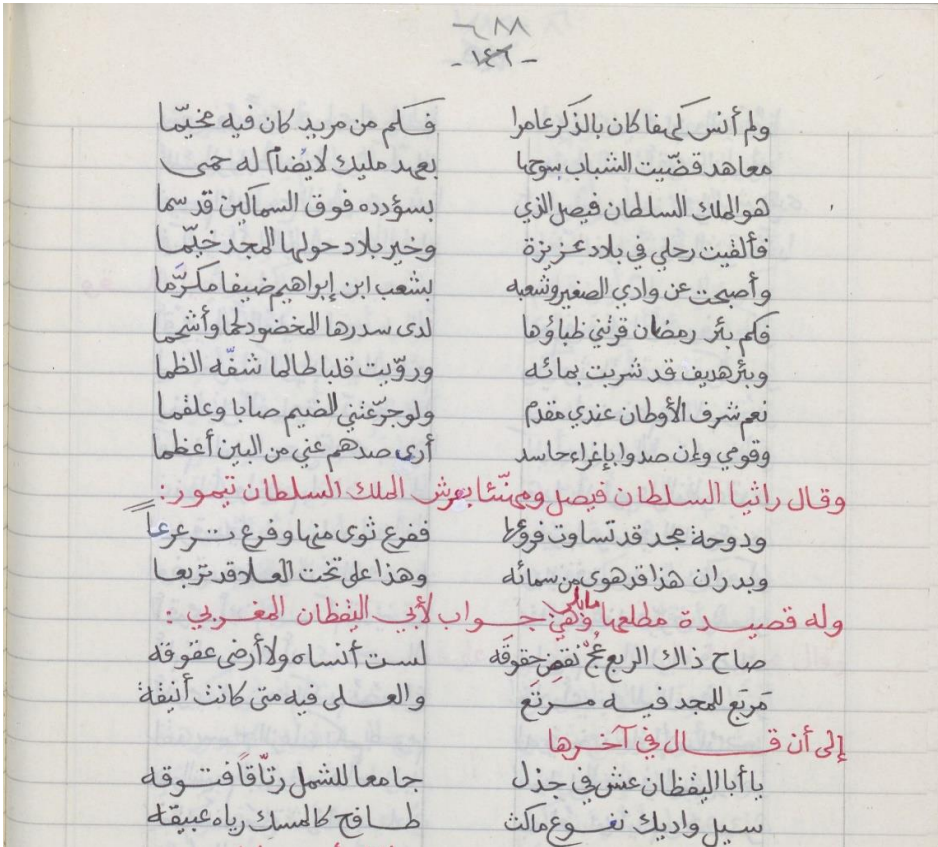 - ٨٨ -
- ١٤٦ -
ولم أنس كهفا كان بالذكر عامرا فكم من مريد كان فيه مخيّما
معاهد قضّيت الشباب بسوحها بعهد مليك لا يُضام له حمى
هو الملك السلطان فيصل الذي بسؤدده فوق السماكين قد سما
فألقيت رحلي في بلاد عزيزة وخير بلاد حولها المجد خيّما
وأصبحت عن وادي الصغير وشعبه بشعب ابن إبراهيم ضيفا مكرَّما
فكم بئر رمضان قرتني ظباؤها لدى سدرها المخضود لحما وأشحما
وبئر هديف قد شربت بمائه وروّيت قلبا طالما شفّه الظما
نعم شرف الأوطان عندي مقدم ولو جرّعتني الضيم صابا وعلقما
وقومي وإن صدوا بإغراء حاسد أرى صدهم عني من البين أعظما
وقال راثيا السلطان فيصل ومهنّئا بعرش الملك السلطان تيمور :
ودوحة مجد قد تساوت فروعها ففرع ثوى منها وفرع ترعرعاً
وبدران هذا قد هوى من سمائه وهذا على تخت العلا قد تربعا
وله قصيدة مطلعها مايلي وهي جواب لأبي اليقظان المغربي :
صاح ذاك الربع عُجْ نقضِ حقوقَه لست أنساه ولا أرضى عقوقه
مَربَع للمجد فيه مرتَع والعلى فيه متى كانت أنيقة
إلى أن قال في آخرها
يا أبا اليقظان عش في جذل جامعا للشمل رتّاقاً فتوقه
سيل واديك نفوع ماكث طافح كالمسك رياه عبيقة